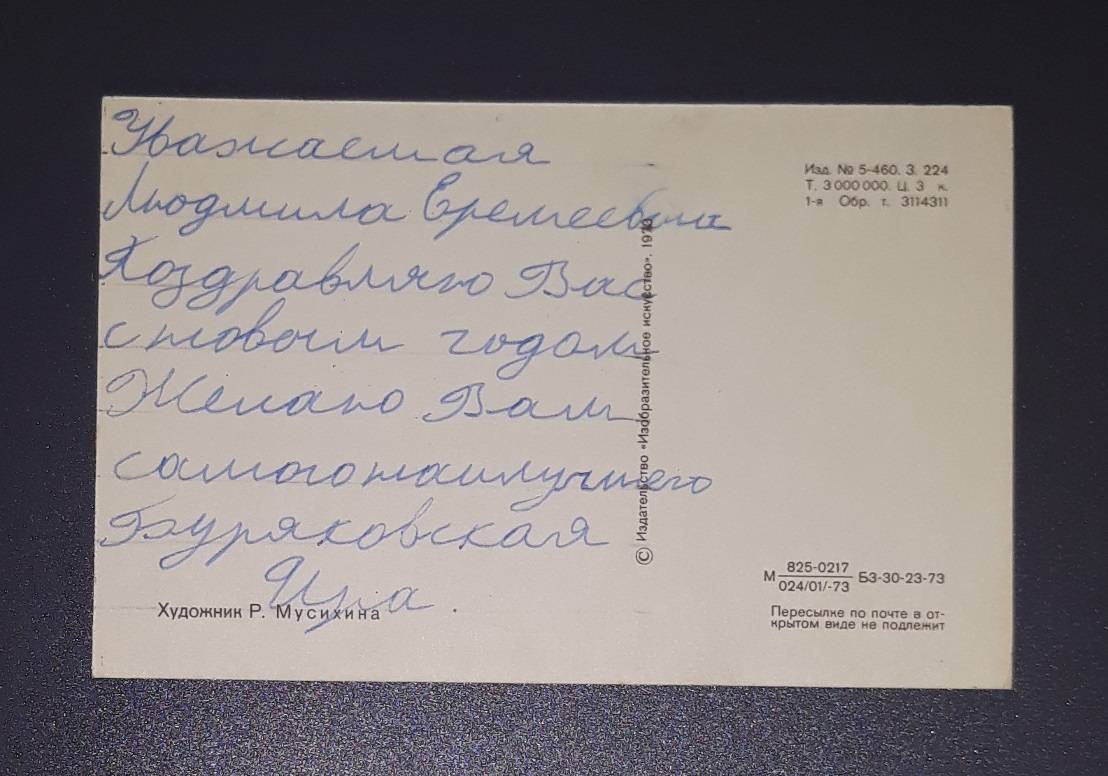 Уважаемая
Людмила Еремеевна
Поздравляю Вас
с новым годом
Желаю Вам
самого наилучшего
Буряковская
Ира.
Художник Р. Мусихина
© Издательство «Изобразительное искусство». 1973
Изд. № 5-460. З. 224
Т. 3 000 000. Ц. 3 к.
1-я Обр. т. 3114311
М 825-0217 БЗ-30-23-73
024/01/-73
Пересылке по почте в от-
крытом виде не подлежит